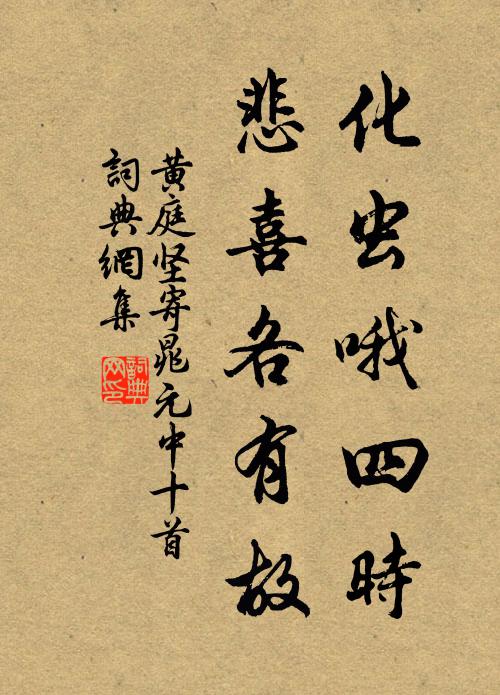 化虫哦四時
悲喜各有故
黄庭坚寄晁元中十首
詞典網集
詞典網印